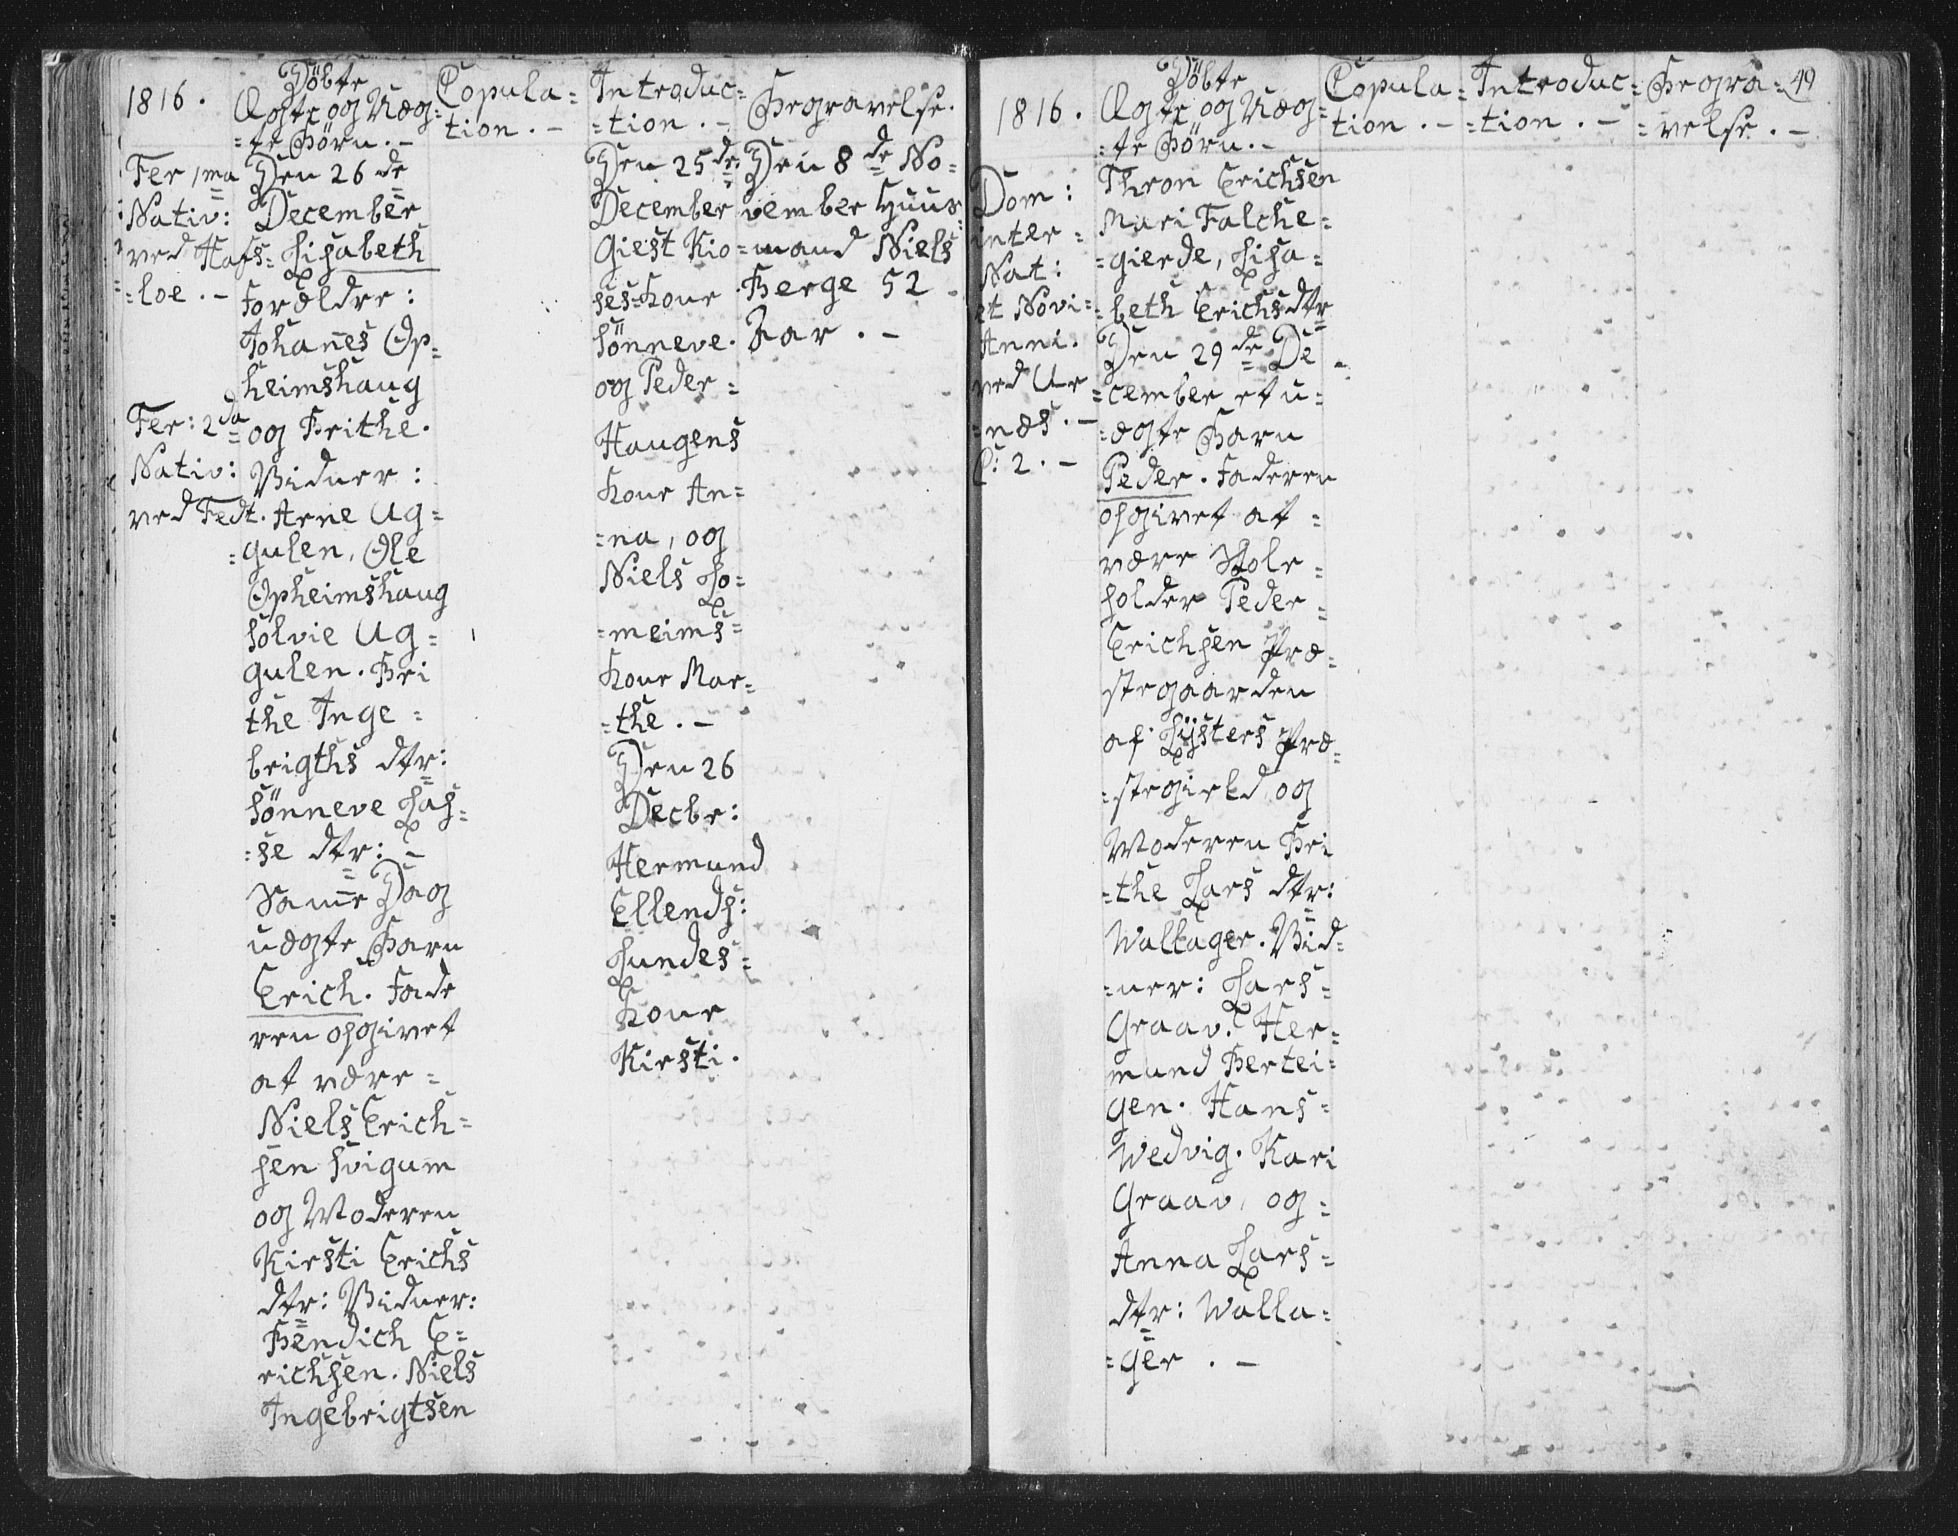 1816.
Döbte
Ægte og Uæg=
=te Börn. –
Copula=
tion. –
Introduc=
=tion. –
Begravelse.
Fer 1ma
Nativ:
ved Hafs=
=loe. –
Fer: 2da
Nativ:
ved Fedt.
Den 26de
December
Lisabeth
Forældre:
Johanes Op=
heimshaug
og Brithe.
Vidner:
Arne Ug=
=gulen, Ole
Opheimshaug
Sölvie Ug=
gulen. Bri
the Inge=
brigths dtr:
Sönneve Las=
=se dtr: –
Samme Dag
uægte Barn
Erich. Fade
ren opgivet
at være=
Niels Erich=
sen Svigum
og Moderen
Kirsti Erichs
dtr: Vidner:
Bendich E=
richsen. Niels
Ingebrigtsen
Den 25de
December
Giest Kio=
ses=Kone
Sönneve.
og Peder=
Haugens
Kone An=
=na, og
Niels Lo=
=meims=
Kone Mar=
=the. –
Den 26
Decbr:
Hermund
Ellends:
Lundes=
Kone
Kirsti.
Den 8de No=
vember Huus
=mand Niels
Berge 52
Aar. –
49
1816.
Döbte
Ægte og Uæg=
=te Börn. –
Copula=
tion. –
=Introduc=
=tion. –
Begra=
=velse. –
Dom:
inter=
Nat:
et Novi=
Anni.
ved Ur
=næs. –
C: 2. –
Thron Erichsen
Mari Falche=
=gierde, Lisa=
=beth Erichsdtr
Den 29de De
=cember et u=
=ægte Barn
Peder. Faderen
opgivet at=
være Skole=
holder Peder=
Erichsen Præ=
stegaarden
af Lÿsters Præ=
=stegield og
Moderen Bri
=the Lars dtr:
Wallager. Vid=
=ner: Lars=
Graav. Her=
mund Bertei=
gen. Hans=
Wedvig. Kari
Graav, og=
Anna Lars=
dtr: Walla=
=ger. –